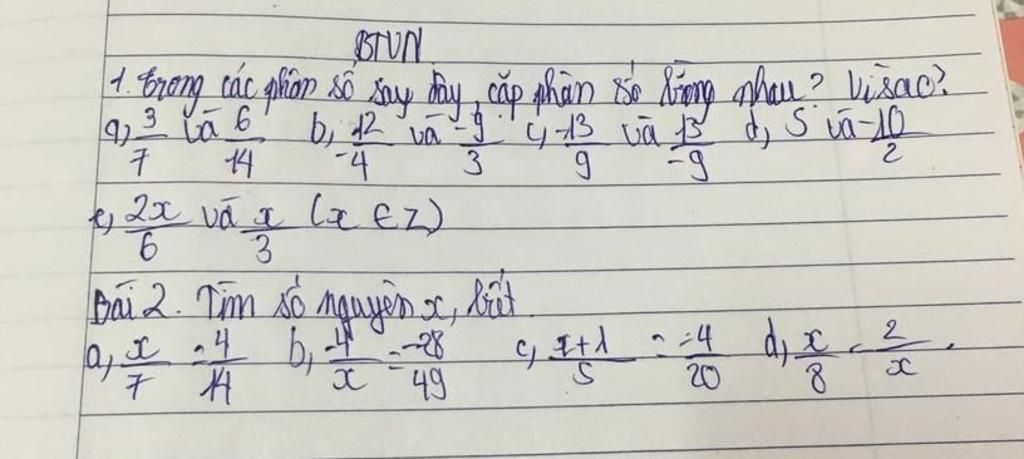 BTVN
1. trong các phân số sau đây, cặp phân số bằng nhau? Vì sao?
a, 3/7 và 6/14 b, -12/-4 và -9/3 c, -13/9 và 13/-9 d, 5 và -10/2
e, 2x/6 và x/3 (x ∈ Z)
Bài 2. Tìm số nguyên x, biết
a, x/7 = 4/14 b, -4/x = -28/49 c, x+1/5 = -4/20 d, x/8 = 2/x.